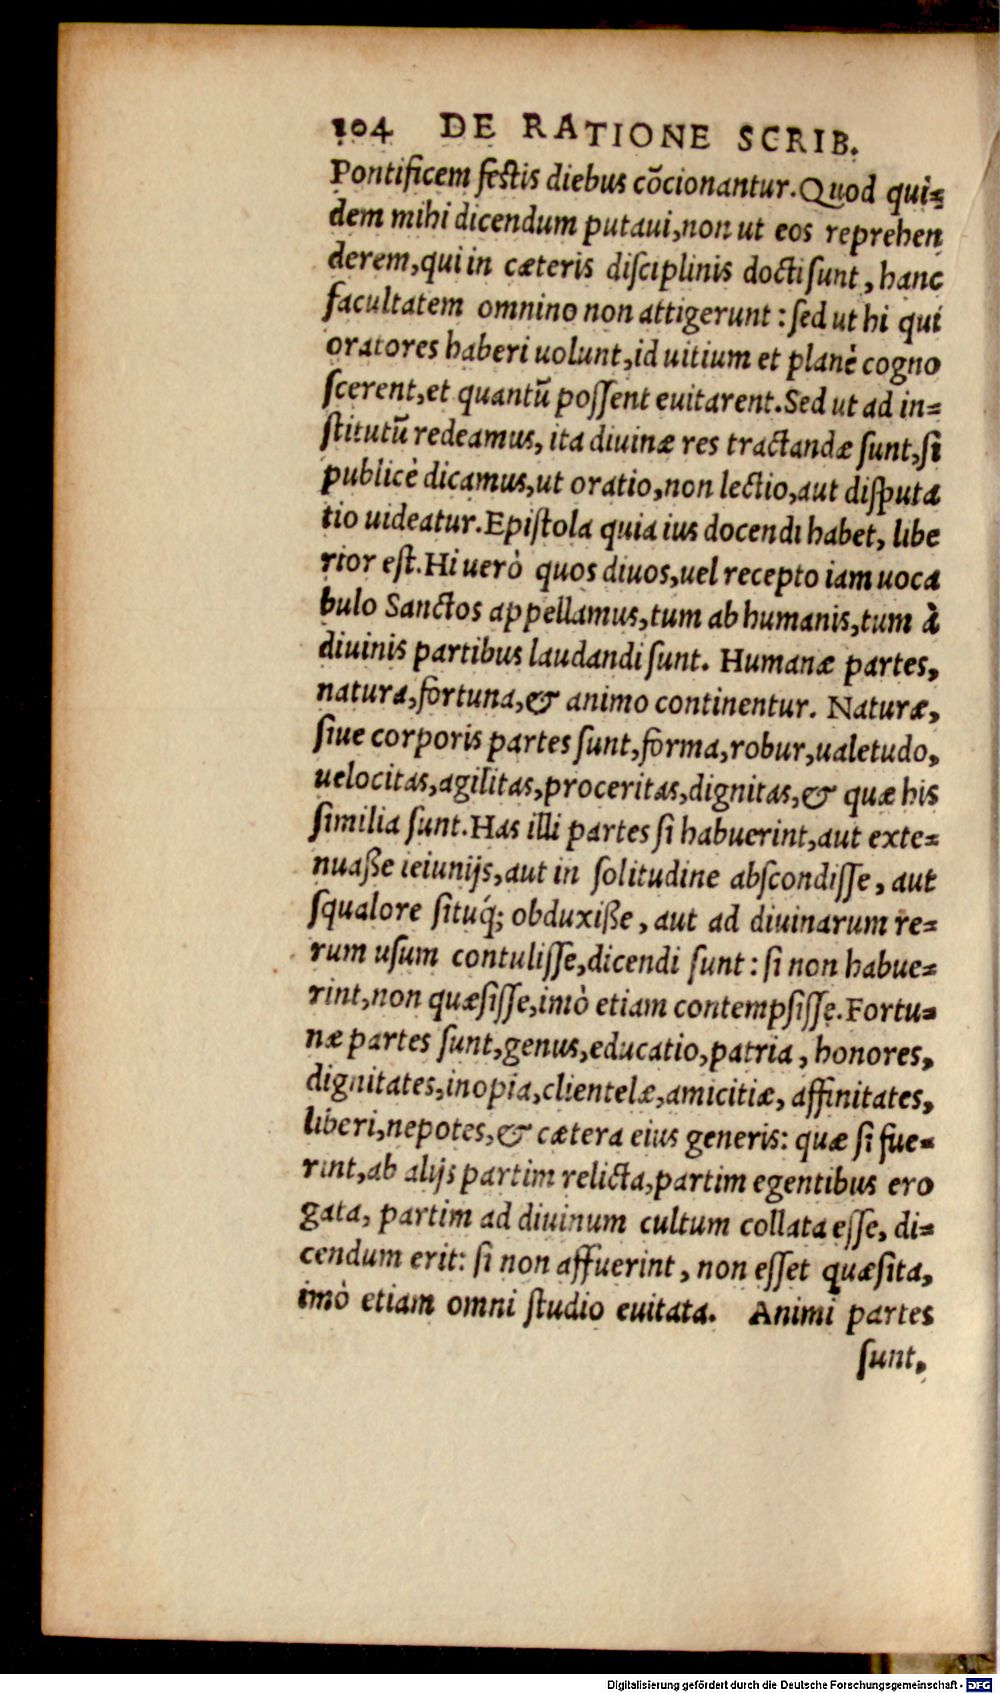 104 DE RATIONE SCRIB.
Pontificem festis diebus cōcionantur. Quod qui-
dem mihi dicendum putaui, non ut eos reprehen
derem, qui in cæteris disciplinis docti sunt, hanc
facultatem omnino non attigerunt: sed ut hi qui
oratores haberi uolunt, id uitium et planè cogno
scerent, et quantū possent euitarent. Sed ut ad in-
stitutū redeamus, ita diuinæ res tractandæ sunt, si
publicè dicamus, ut oratio, non lectio, aut disputa
tio uideatur. Epistola quia ius docendi habet, libe
rior est. Hi uerò quos diuos, uel recepto iam uoca
bulo Sanctos appellamus, tum ab humanis, tum à
diuinis partibus laudandi sunt. Humanæ partes,
natura, fortuna, & animo continentur. Naturæ,
siue corporis partes sunt, forma, robur, ualetudo,
uelocitas, agilitas, proceritas, dignitas, & quæ his
similia sunt. Has illi partes si habuerint, aut exte-
nuaße ieiunijs, aut in solitudine abscondisse, aut
squalore situq́; obduxiße, aut ad diuinarum re-
rum usum contulisse, dicendi sunt: si non habue-
rint, non quæsisse, imò etiam contempsisse. Fortu-
næ partes sunt, genus, educatio, patria, honores,
dignitates, inopia, clientelæ, amicitiæ, affinitates,
liberi, nepotes, & cætera eius generis: quæ si fue-
rint, ab alijs partim relicta, partim egentibus ero
gata, partim ad diuinum cultum collata esse, di-
cendum erit: si non affuerint, non esset quæsita,
imò etiam omni studio euitata. Animi partes
sunt,
Digitalisierung gefördert durch die Deutsche Forschungsgemeinschaft - DFG